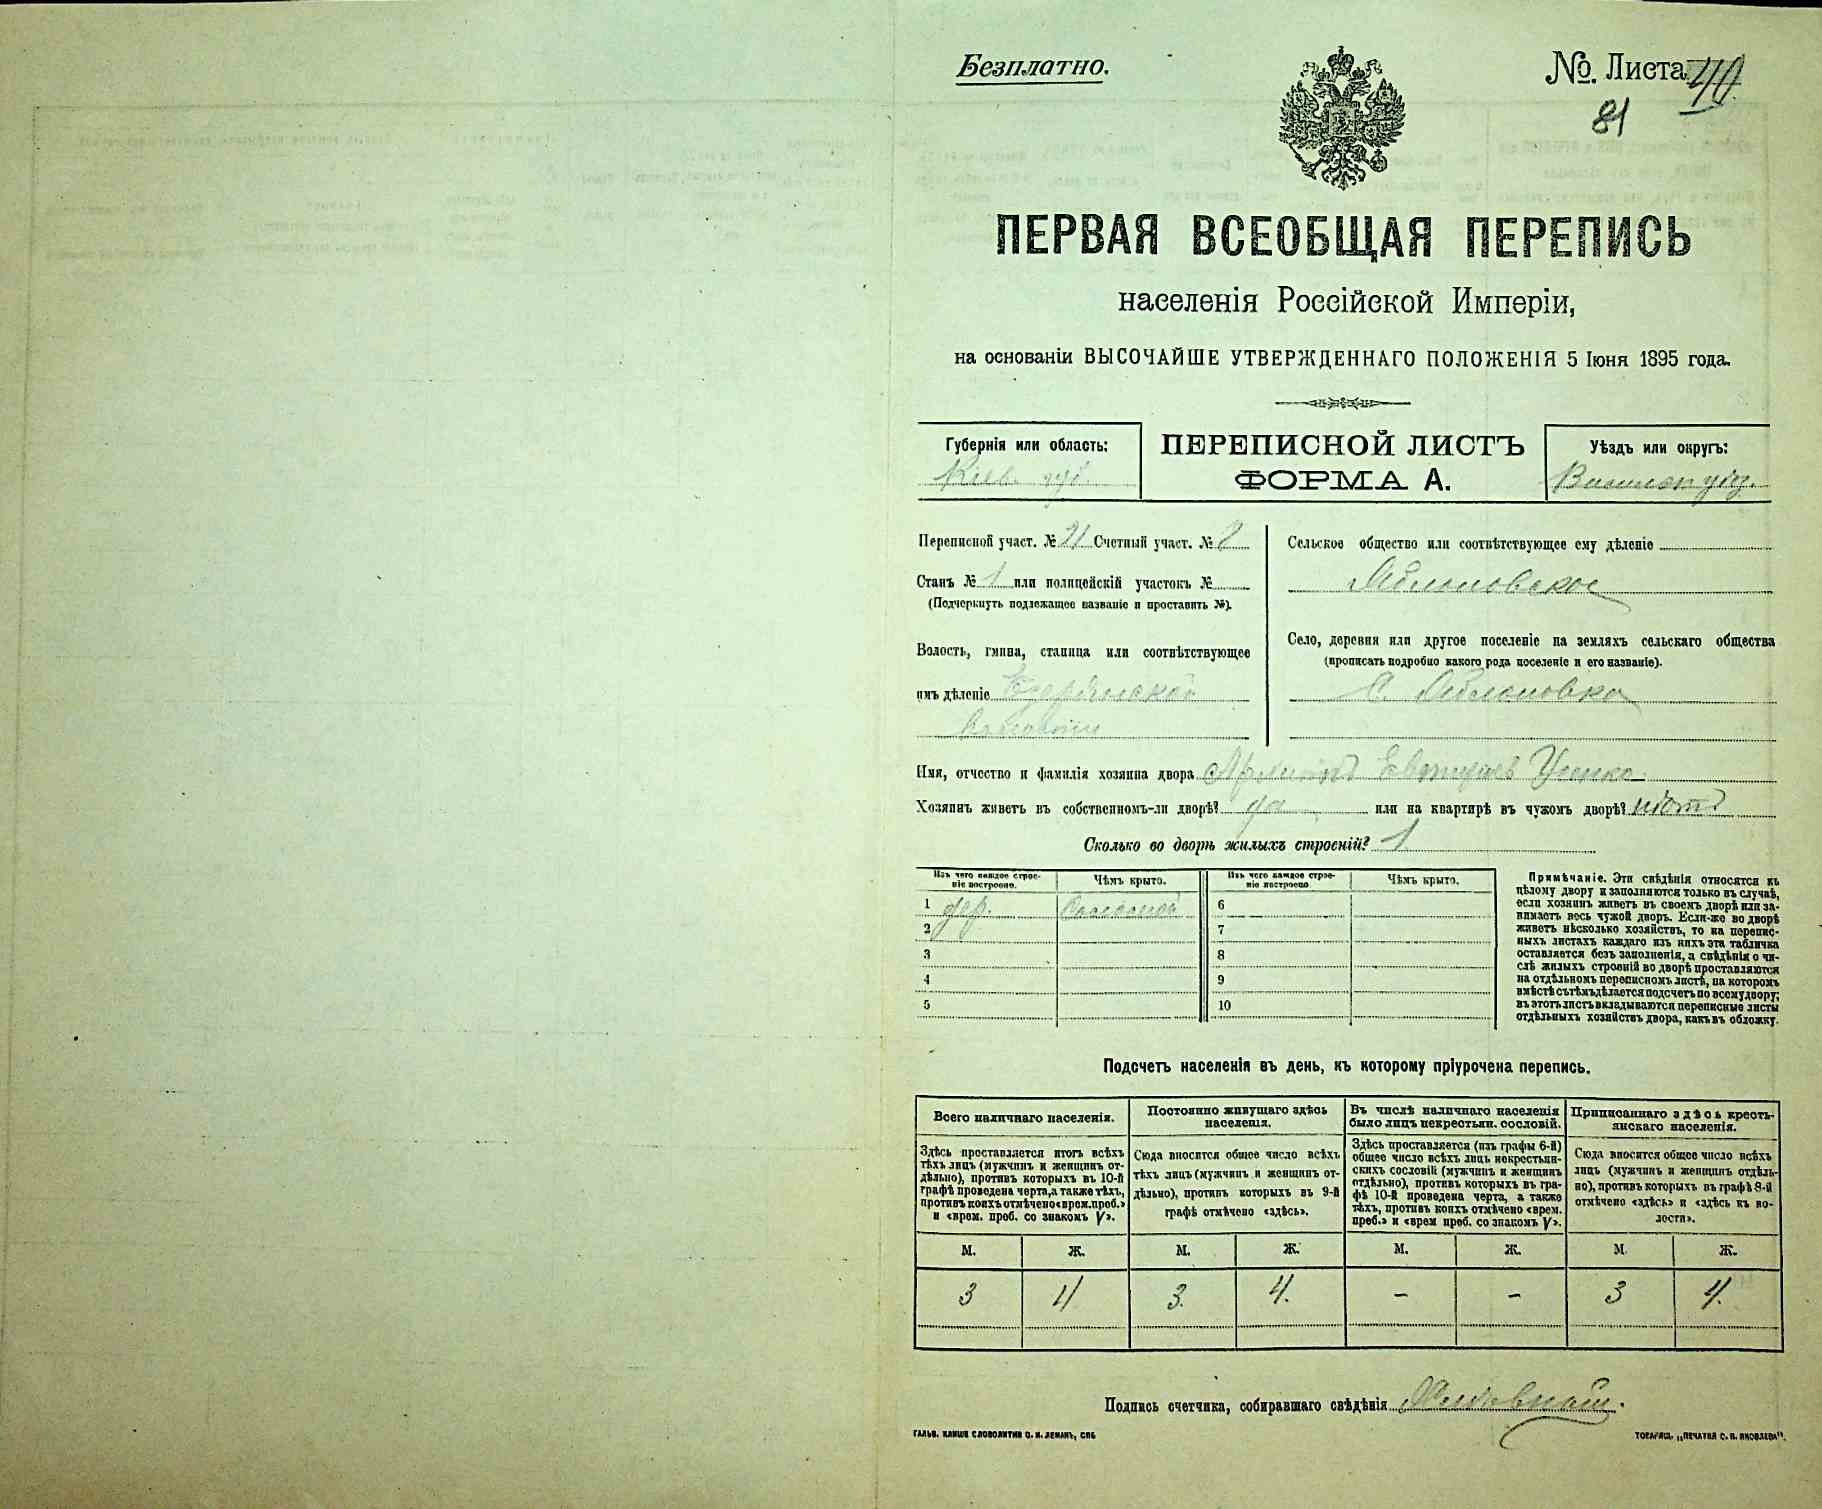 Безплатно.
№. Листа 40.
81
ПЕРВАЯ ВСЕОБЩАЯ ПЕРЕПИСЬ
населенія Россійской Имперіи,
на основаніи ВЫСОЧАЙШЕ УТВЕРЖДЕННАГО ПОЛОЖЕНІЯ 5 Іюня 1895 года.
Губернія или область:
Кіев. губ.
ПЕРЕПИСНОЙ ЛИСТЪ
ФОРМА А.
Уѣздъ или округъ:
Переписной участ. № 21 Счетный участ. № 2
Станъ № 1 или полицейскій участокъ №
(Подчеркнуть подлежащее названіе и проставить №).
Волость, гмина, станица или соотвѣтствующее
имъ дѣленіе
волости
Сельское общество или соотвѣтствующее ему дѣленіе
Яблоновское
Село, деревня или другое поселеніе на земляхъ сельскаго общества
(прописать подробно какого рода поселеніе и его названіе).
С. Яблоновка
Имя, отчество и фамилія хозяина двора
Хозяинъ живетъ въ собственномъ-ли дворѣ? да или на квартирѣ въ чужомъ дворѣ? нѣтъ
Сколько во дворѣ жилыхъ строеній? 1
Изъ чего каждое строе-
ніе построено.
Чѣмъ крыто.
1 дер. Соломой
2
3
4
5
Изъ чего каждое строе-
ніе построено
Чѣмъ крыто.
6
7
8
9
10
Примѣчаніе. Эти свѣдѣнія относятся къ
цѣлому двору и заполняются только въ случаѣ,
если хозяинъ живетъ въ своемъ дворѣ или за-
нимаетъ весь чужой дворъ. Если-же во дворѣ
живетъ нѣсколько хозяйствъ, то на перепис-
ныхъ листахъ каждаго изъ нихъ эта табличка
оставляется безъ заполненія, а свѣдѣнія о чи-
слѣ жилыхъ строеній во дворѣ проставляются
на отдѣльномъ переписномъ листѣ, на которомъ
вмѣстѣ съ тѣмъ дѣлается подсчетъ по всему двору;
въ этотъ листъ вкладываются переписные листы
отдѣльныхъ хозяйствъ двора, какъ въ обложку.
Подсчетъ населенія въ день, къ которому пріурочена перепись.
Всего наличнаго населенія.
Здѣсь проставляется итогъ всѣхъ
тѣхъ лицъ (мужчинъ и женщинъ от-
дѣльно), противъ которыхъ въ 10-й
графѣ проведена черта, а также тѣхъ,
противъ коихъ отмѣчено «врем. преб.»
и «врем. преб. со знакомъ V».
М. Ж.
3 4
Постоянно живущаго здѣсь
населенія.
Сюда вносится общее число всѣхъ
тѣхъ лицъ (мужчинъ и женщинъ от-
дѣльно), противъ которыхъ въ 9-й
графѣ отмѣчено «здѣсь».
М. Ж.
3. 4.
Въ числѣ наличнаго населенія
было лицъ некрестьян. сословій.
Здѣсь проставляется (изъ графы 6-й)
общее число всѣхъ лицъ некрестьян-
скихъ сословій (мужчинъ и женщинъ
отдѣльно), противъ которыхъ въ гра-
фѣ 10-й проведена черта, а также
тѣхъ, противъ коихъ отмѣчено «врем.
преб.» и «врем. преб. со знакомъ V».
М. Ж.
– –
Приписаннаго здѣсь кресть-
янскаго населенія.
Сюда вносится общее число всѣхъ
лицъ (мужчинъ и женщинъ отдѣль-
но), противъ которыхъ въ графѣ 8-й
отмѣчено «здѣсь» и «здѣсь къ во-
лости».
М. Ж.
3 4.
Подпись счетчика, собиравшаго свѣдѣнія
ГАЛЬВ. КЛИШЕ СЛОВОЛИТНИ О. И. ЛЕМАНЪ, СПБ
ТОВАРИЩ. „ПЕЧАТНЯ С. П. ЯКОВЛЕВА".